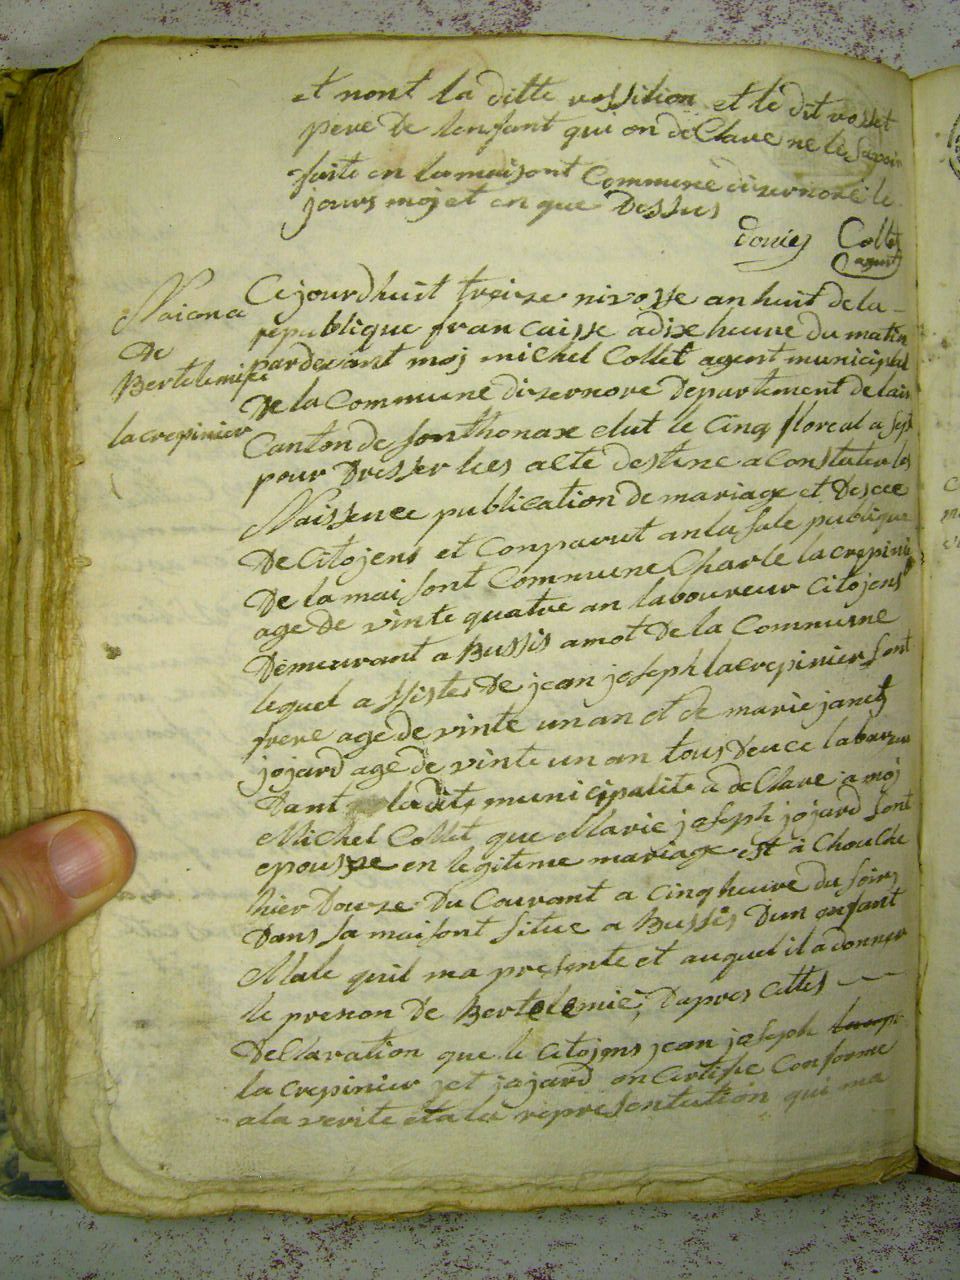 et nont la ditte rossition et le dit rosset
pere De lenfant qui on deClare ne le savoir
faite en la maisont Commune dizernore le
jours moj et en que Dessus
Collet
agent
Naicance
De
Bertelemie
lacrepinier
Cejourdhuit treize nivosse an huit de la
republique francaisse a dix heure du matin
pardevant moj michel Collet agent municipal
De la Commune dizernore Departement de lain
Canton de sonthonax elut le Cinq floreal a sept
pour Dresser lees acte destine a Constater les
Naissence publication de mariage et Descee
De Citojens et Conparut an la sale publique
De la maisont Commune Charle lacrepinie
age de vinte quatre an laboureur Citojens
Demeurant a Bussis amot De la Commusne
lequel assiste De jean joseph lacrepinier sont
frere age de vinte un an et de marie janet
jojard age de vinte un an tous Deuce
Dant ladite municipalite a deClare a moj
Michel Collet que Marie joseph jojard sont
epousse en legitime mariage est a Chouche
hier Douze Du Courant a Cinq heure du soirs
Dans sa maisont situe a Bussis Dun anfant
Male quil ma presente et auquel il a donner
le prenon de Bertelemie, Dapres cettes
DeClaration que le Citojens jean joseph
la crepinier jet jojard on Certifie Conforme
a la verite et a la representation qui ma